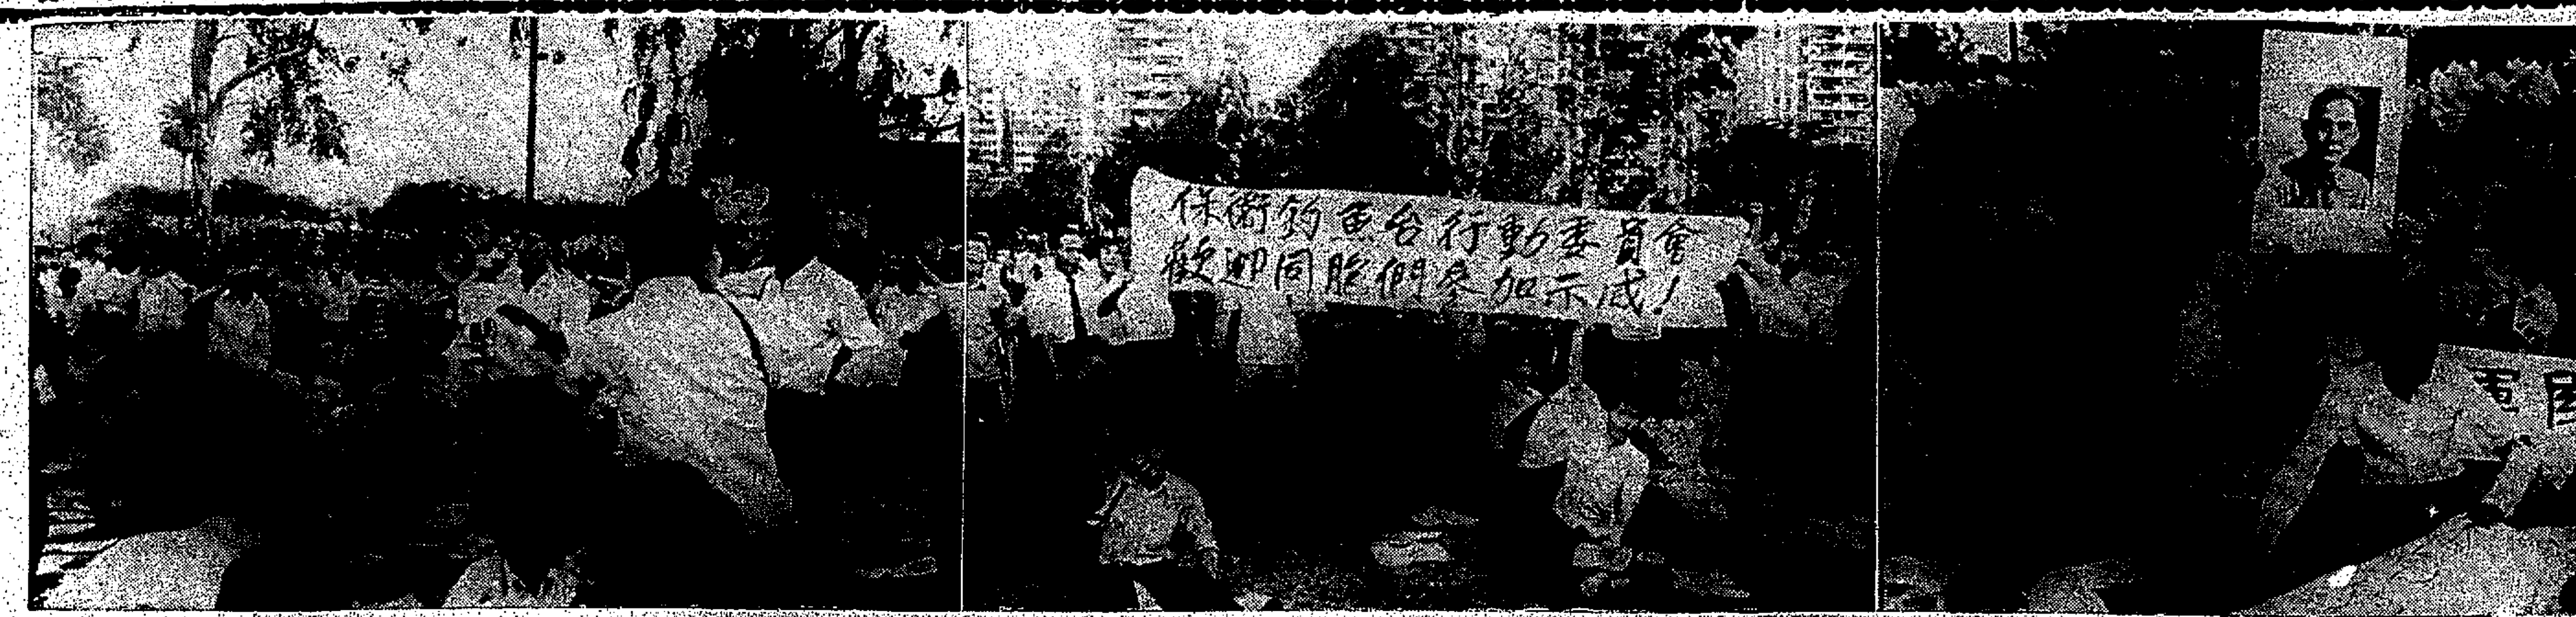 保衛釣魚台行動委員會
歡迎同胞們參加示威!